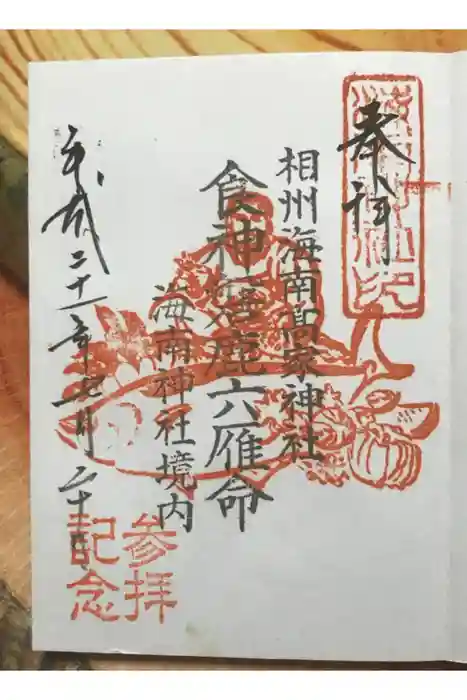 奉拝
相州海南髙家神社
食神磐鹿六雁命
海南神社境内
平成二十一年七月二十日
参拝
記念